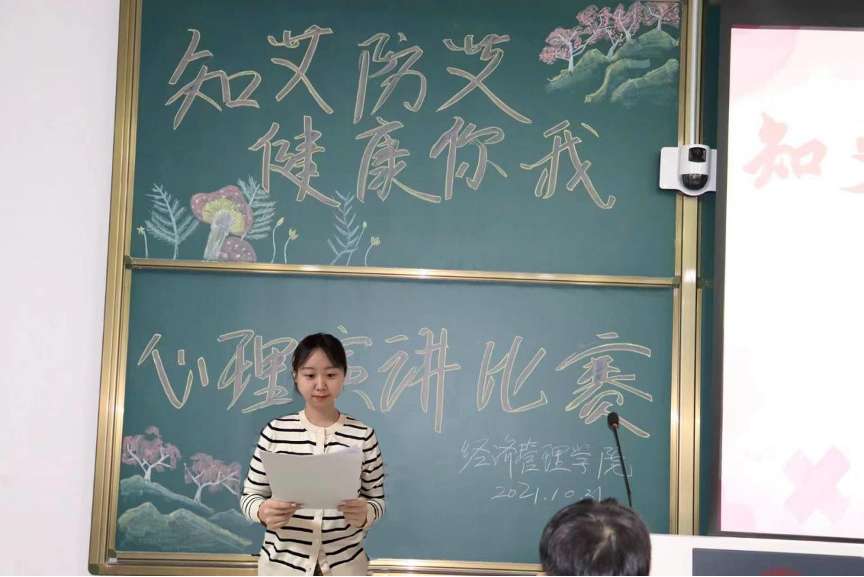 知艾防艾
健康你我
心理演讲比赛
经济管理学院
2021.10.21
知